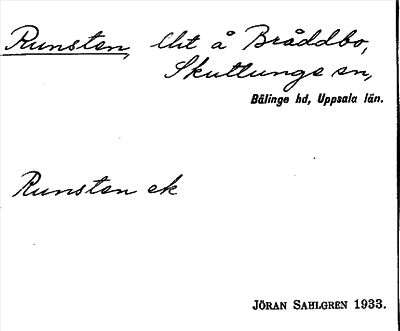 Runsten, lht å Bråddbo,
Skuttunge sn,
Bälinge hd, Uppsala län.
Runsten ek
JÖRAN SAHLGREN 1933.